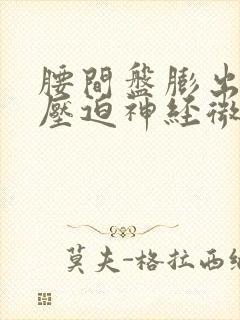 腰間盤膨出
壓迫神経微
莫夫-格拉西缅